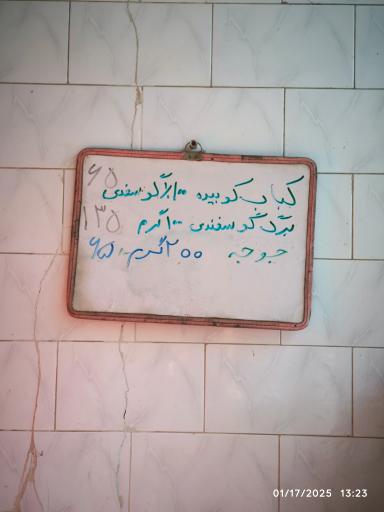 کباب کوبیده ۱۰۰٪ گوسفندی ۶۵
برگ گوسفندی ۱۰۰گرم ۱۳۵
جوجه ۲۰۰گرم ۶۵
01/17/2025 13:23